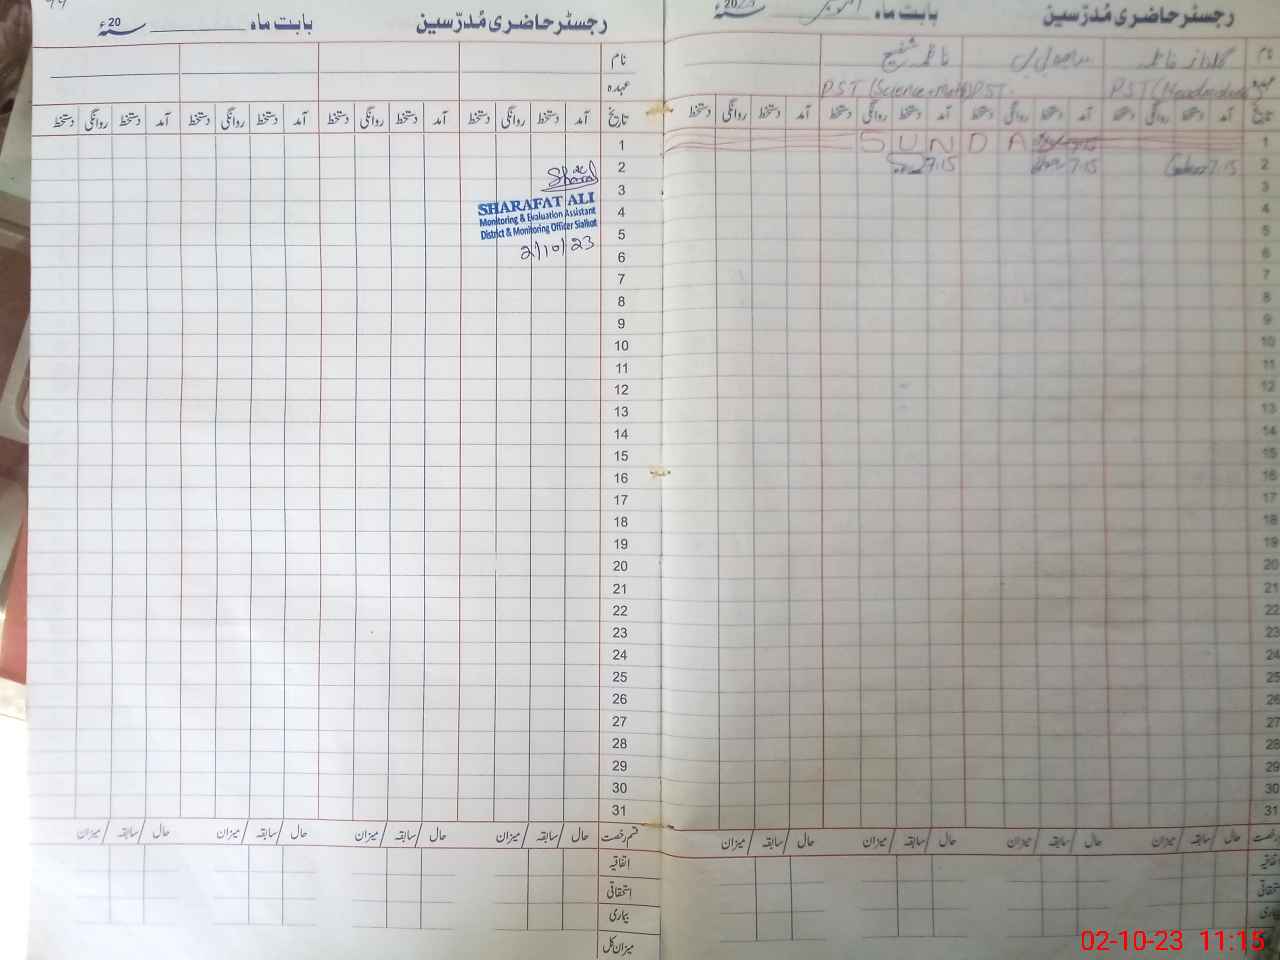 رجسٹر حاضری مُدرّسین بابت ماہ اکتوبر سنہ 2023ء
نام
عہدہ PST (Headmistress PST. PST (Science-Math)
تاریخ آمد دستخط روانگی دستخط آمد دستخط روانگی دستخط آمد دستخط روانگی دستخط آمد دستخط روانگی دستخط
1 SUNDA
2 7:15 7:15 7:15
3
4
5
6
7
8
9
10
11
12
13
14
15
16
17
18
19
20
21
22
23
24
25
26
27
28
29
30
31
رخصت حال / سابقہ / میزان حال / سابقہ / میزان حال / سابقہ / میزان حال / سابقہ / میزان
اتفاقیہ
استحقاقی
بیماری
رجسٹر حاضری مُدرّسین بابت ماہ سنہ 20ء
نام
عہدہ
تاریخ آمد دستخط روانگی دستخط آمد دستخط روانگی دستخط آمد دستخط روانگی دستخط آمد دستخط روانگی دستخط
1
2
3
4
5
6
7
8
9
10
11
12
13
14
15
16
17
18
19
20
21
22
23
24
25
26
27
28
29
30
31
SHARAFAT ALI
Monitoring & Evaluation Assistant
District & Monitoring Officer Sialkot
2/10/23
قسم رخصت حال / سابقہ / میزان حال / سابقہ / میزان حال / سابقہ / میزان حال / سابقہ / میزان
اتفاقیہ
استحقاقی
بیماری
میزان کل
02-10-23 11:15